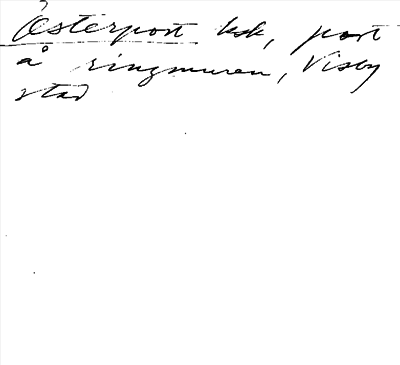 Österport ksk, port
å ringmuren, Visby
stad